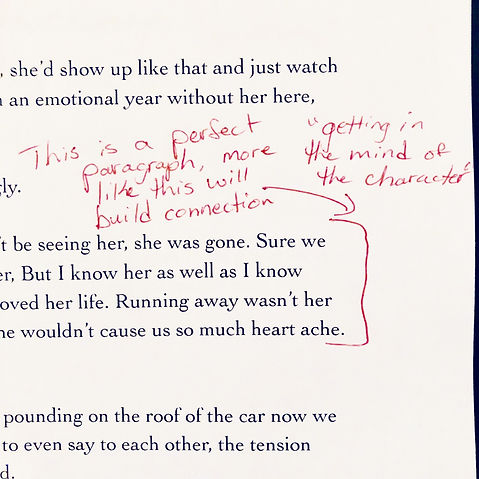 , she'd show up like that and just watch
an emotional year without her here,
This is a perfect
paragraph, more
like this will
build connection
"getting in
the mind of
the character"
gly.
't be seeing her, she was gone. Sure we
er, But I know her as well as I know
loved her life. Running away wasn't her
he wouldn't cause us so much heart ache.
pounding on the roof of the car now we
to even say to each other, the tension
d.